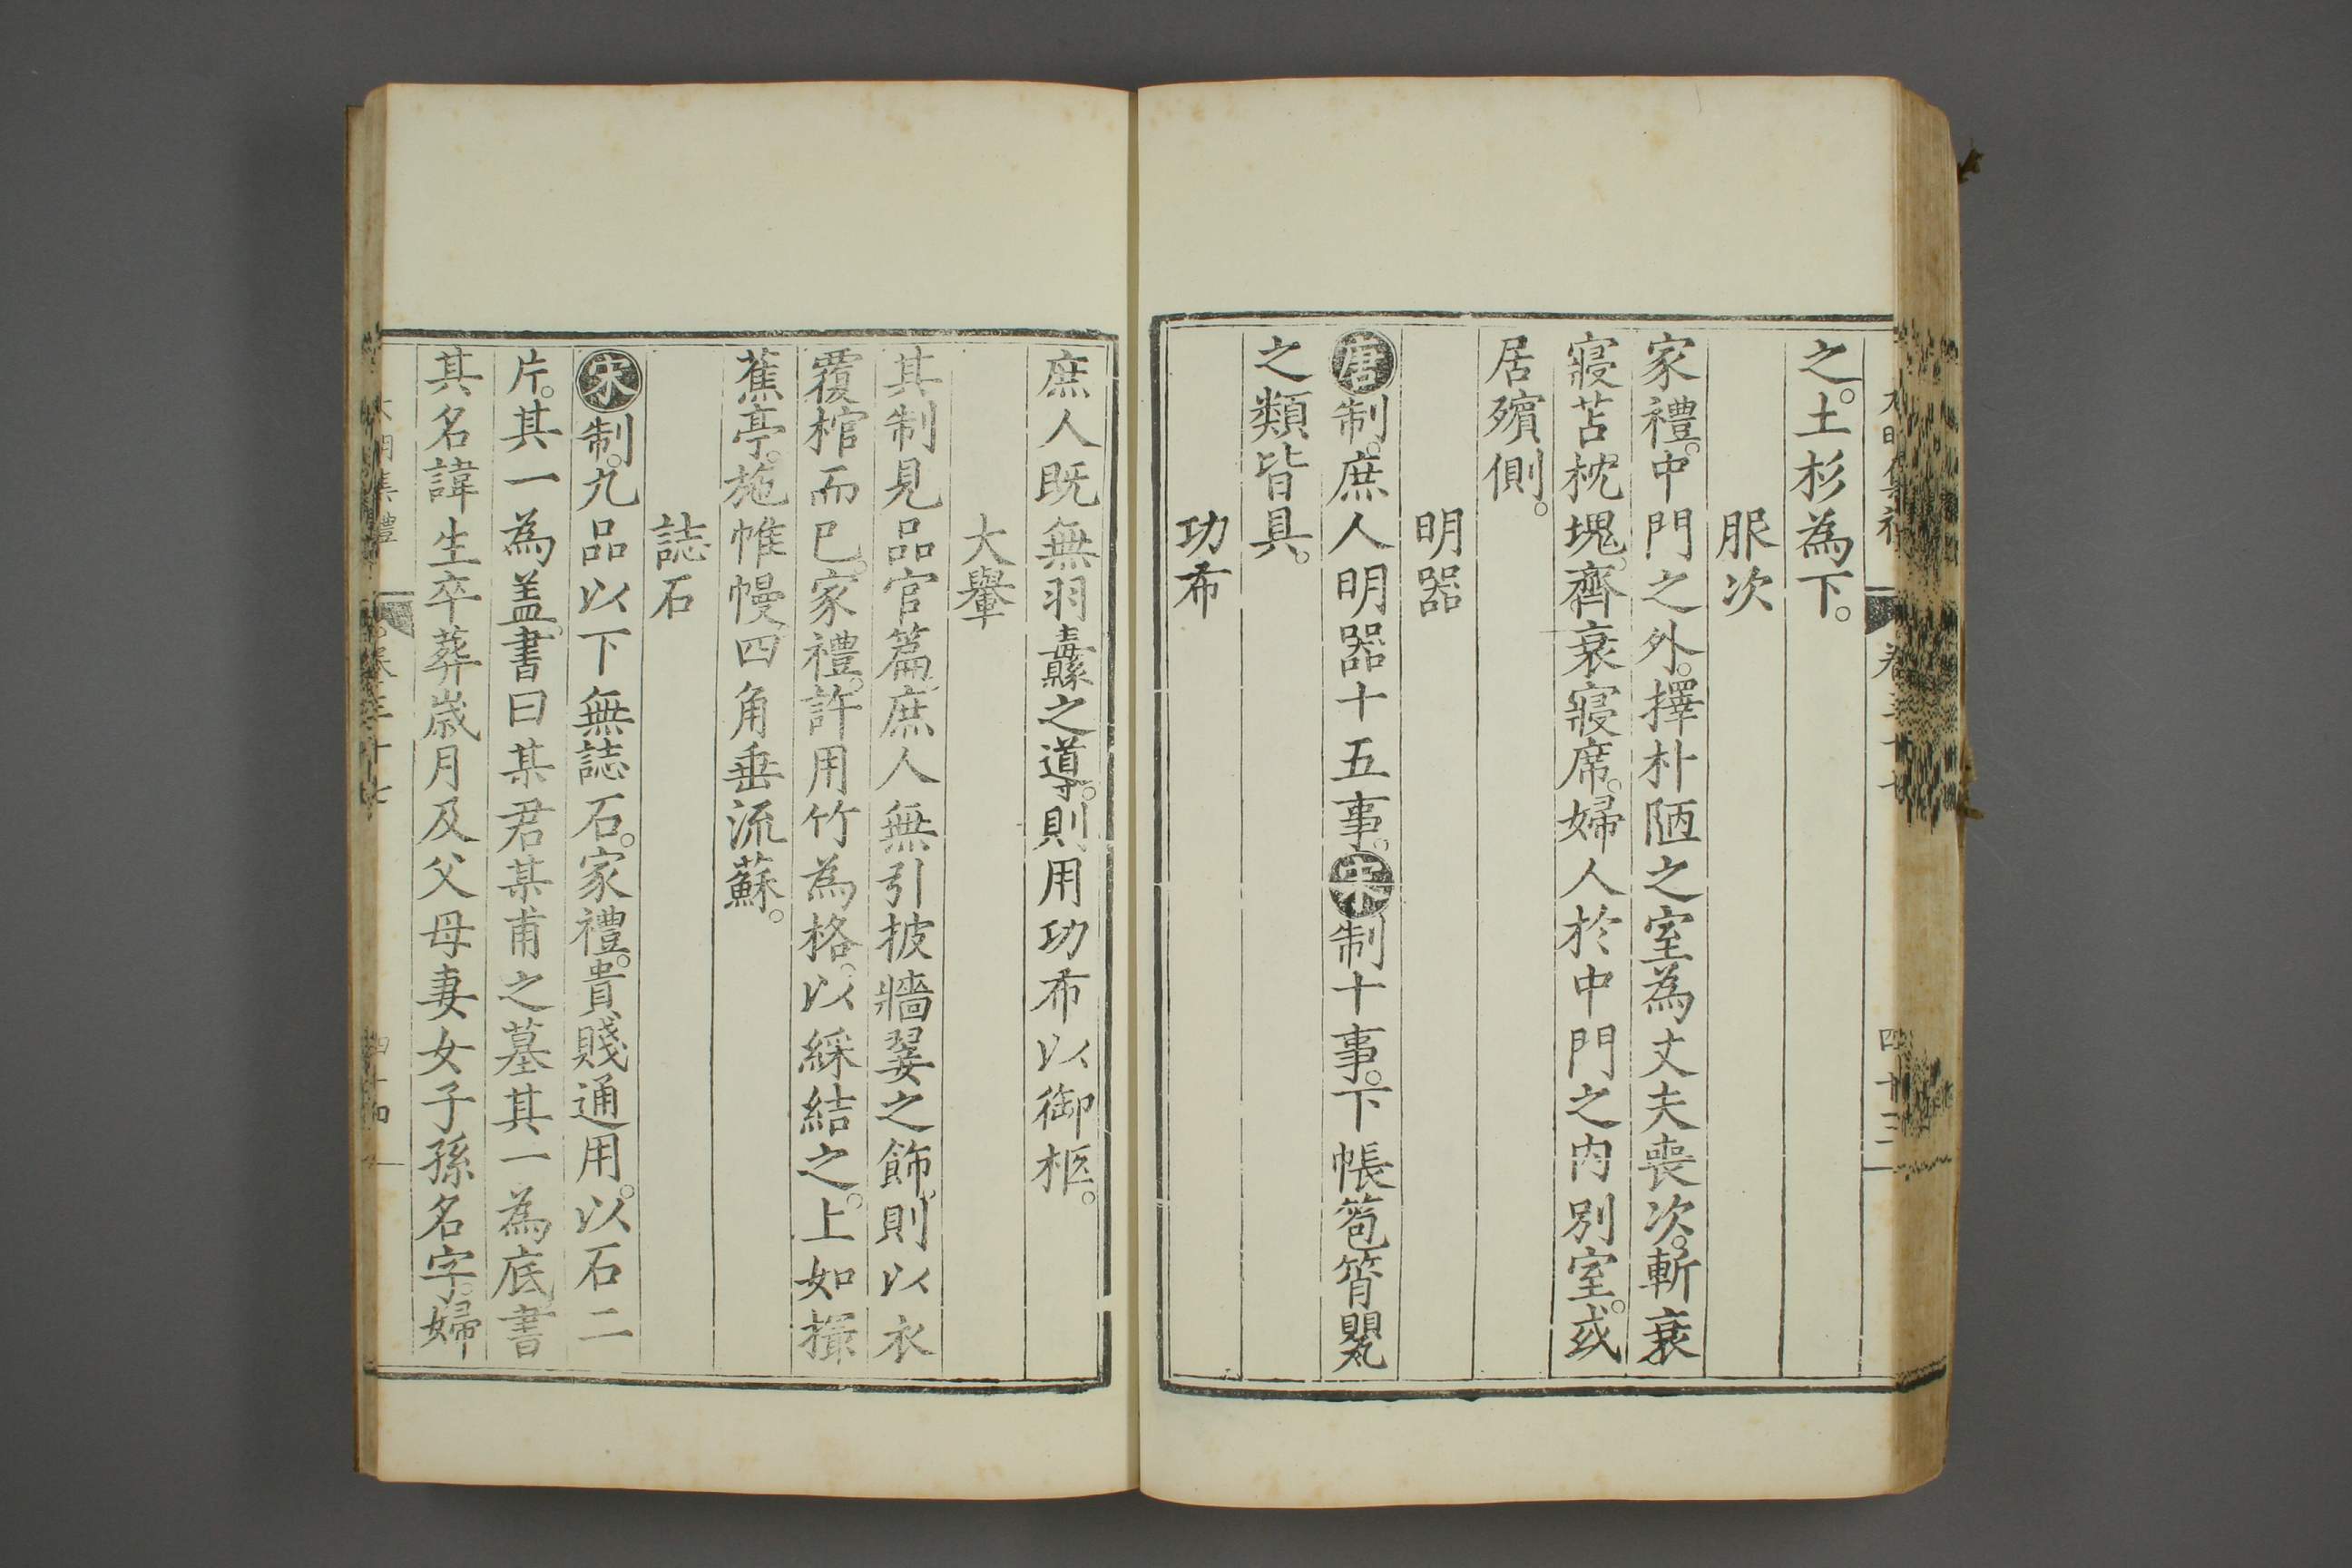 之。土杉為下。
服次
家禮。中門之外。擇朴陋之室為丈夫喪次。斬衰
寢苫。枕塊。齊衰寢席。婦人於中門之内别室。或
居殯側。
明器
唐制。庶人明器十五事。宋制十事。下帳筲甖
之類皆具。
功布
庶人既無羽纛之導。則用功布以御柩。
大轝
其制見品官篇。庶人無引披牆翣之飾。則以衣
覆棺而已。家禮。許用竹為格。以綵結之。上如撮
蕉亭。施帷幔。四角垂流蘇。
誌石
宋制。九品以下無誌石。家禮。貴賤通用。以石二
片。其一為盖。書曰某君某甫之墓其一為底。書
其名諱生卒葬歲月及父母妻女子孫名字。婦
大明集禮 卷三十七 四十四